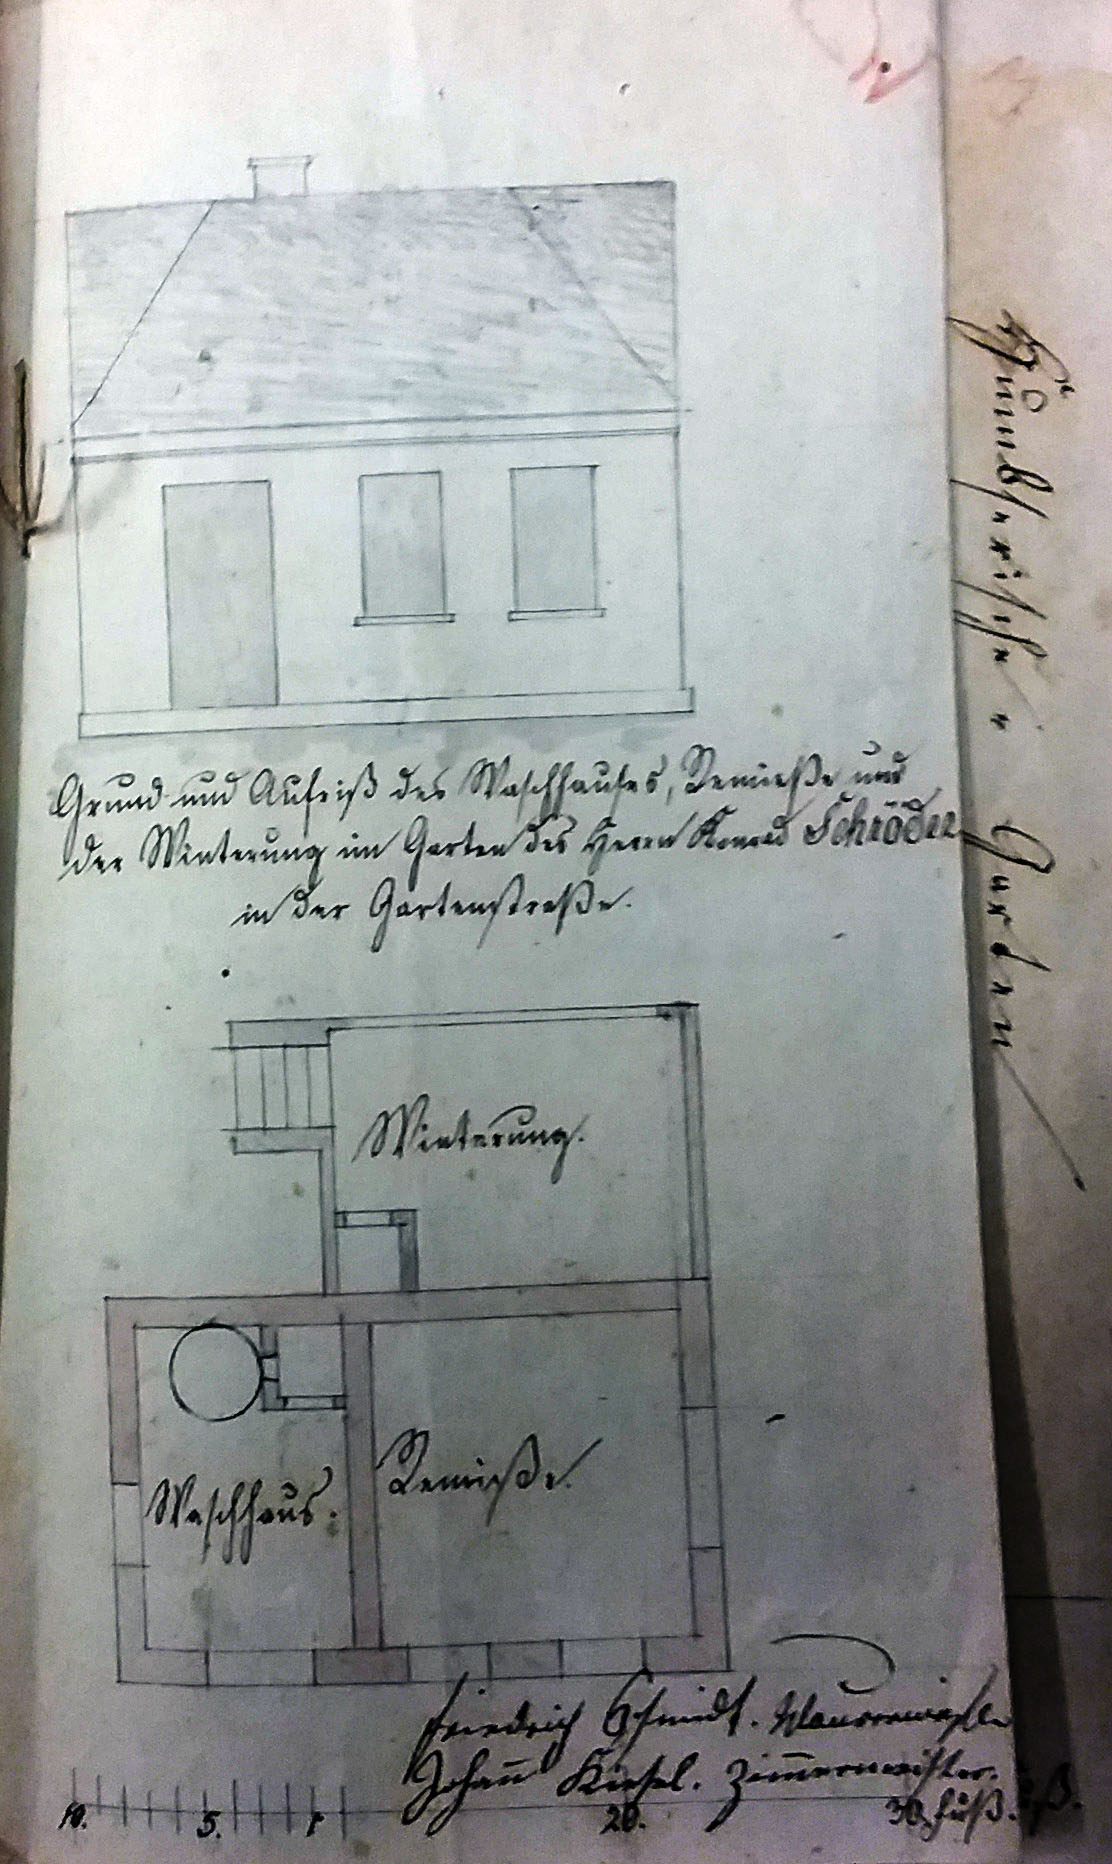 Grund- und Aufriß des Waschhauses, Remieße und
der Winterung im Garten des Herrn Konrad Schröder
in der Gartenstraße.
Winterung.
Waschhaus.
Remieße.
Friedrich Schmidt. Maurermeister
Johann Kiesel. Zimmermeister.
10. 5. 1 20. 30. Fuß.
Garten